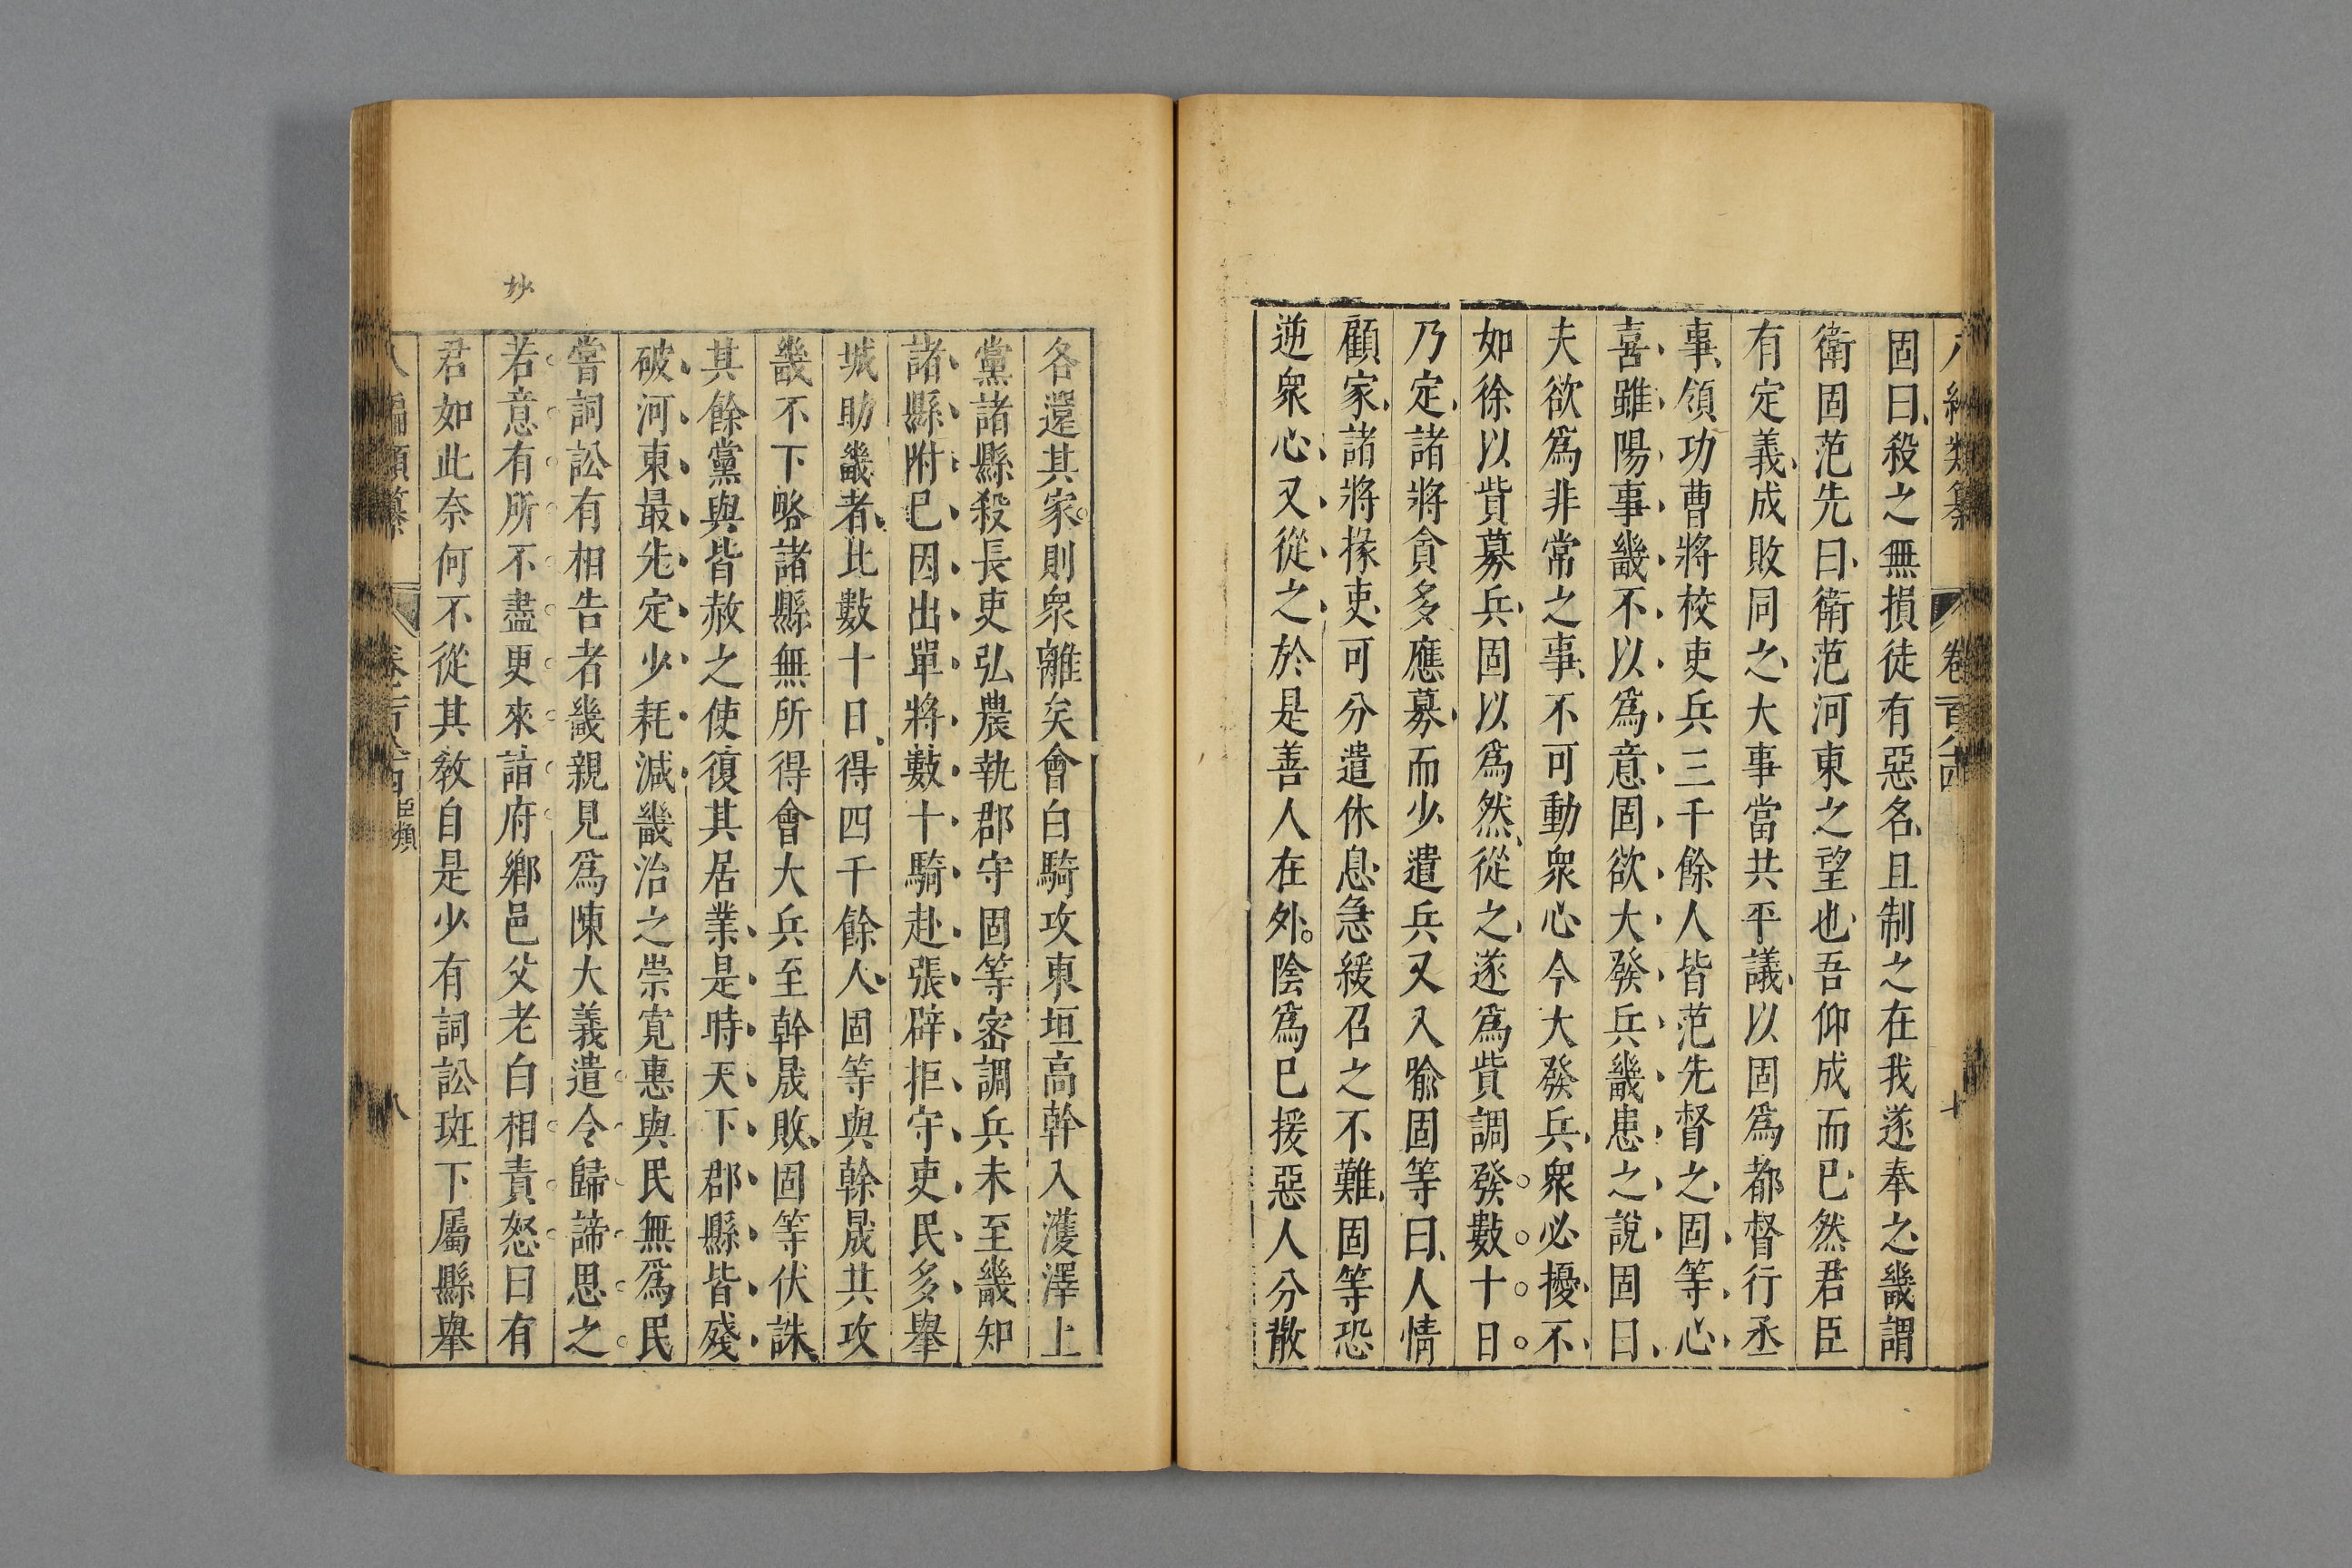 固曰殺之無損徒有惡名且制之在我遂奉之畿謂
衛固范先曰衛范河東之望也吾仰成而已然君臣
有定義成敗同之大事當共平議以固爲都督行丞
事領功曹將校吏兵三千餘人皆范先督之固等心
喜雖陽事畿不以爲意固欲大發兵畿患之說固曰
夫欲爲非常之事不可動衆心今大發兵衆必擾不
如徐以貲募兵固以爲然從之遂爲貲調發數十日
乃定諸將貪多應募而少遣兵又入喻固等曰人情
顧家諸將掾吏可分遣休息急緩召之不難固等恐
逆衆心又從之於是善人在外陰爲已援惡人分散
各還其家則衆離矣會白騎攻東垣高幹入濩澤上
黨諸縣殺長吏弘農執郡守固等密調兵未至畿知
諸縣附已因出單將數十騎赴張辟拒守吏民多舉
城助畿者比數十日得四千餘人固等與幹晟共攻
畿不下略諸縣無所得會大兵至幹晟敗固等伏誅
其餘黨與皆赦之使復其居業是時天下郡縣皆殘
破河東最先定少耗減畿治之崇寬惠與民無爲民
嘗詞訟有相告者畿親見爲陳大義遣令歸諦思之
若意有所不盡更來詣府鄉邑父老自相責怒曰有
君如此奈何不從其教自是少有詞訟班下屬縣舉
妙
類纂
卷百八十四
臣類
八